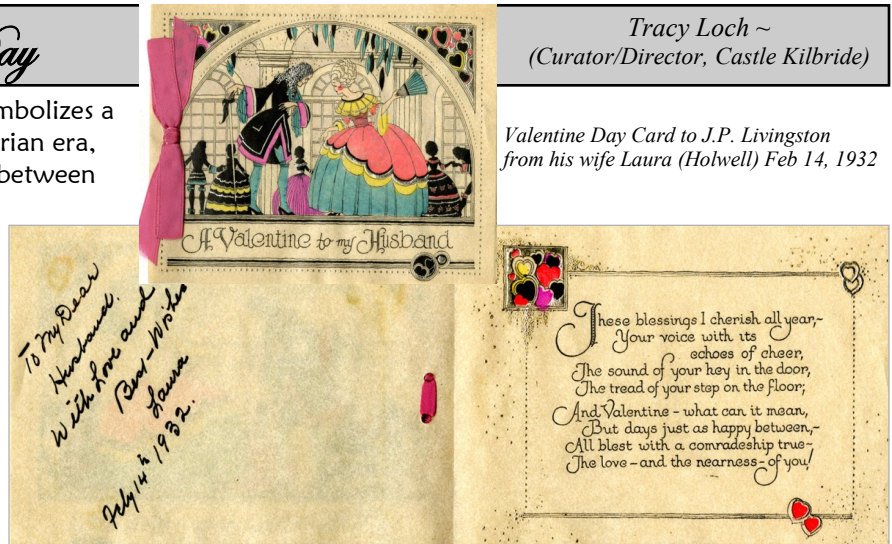 ay
Tracy Loch ~
(Curator/Director, Castle Kilbride)
mbolizes a
rian era,
between
Valentine Day Card to J.P. Livingston
from his wife Laura (Holwell) Feb 14, 1932
A Valentine to my Husband
To My Dear
Husband.
With Love and
Best-Wishes
Laura
Feby 14th 1932.
These blessings I cherish all year,~
Your voice with its
echoes of cheer,
The sound of your key in the door,
The tread of your step on the floor;
And Valentine - what can it mean,
But days just as happy between,~
All blest with a comradeship true~
The love - and the nearness - of you!